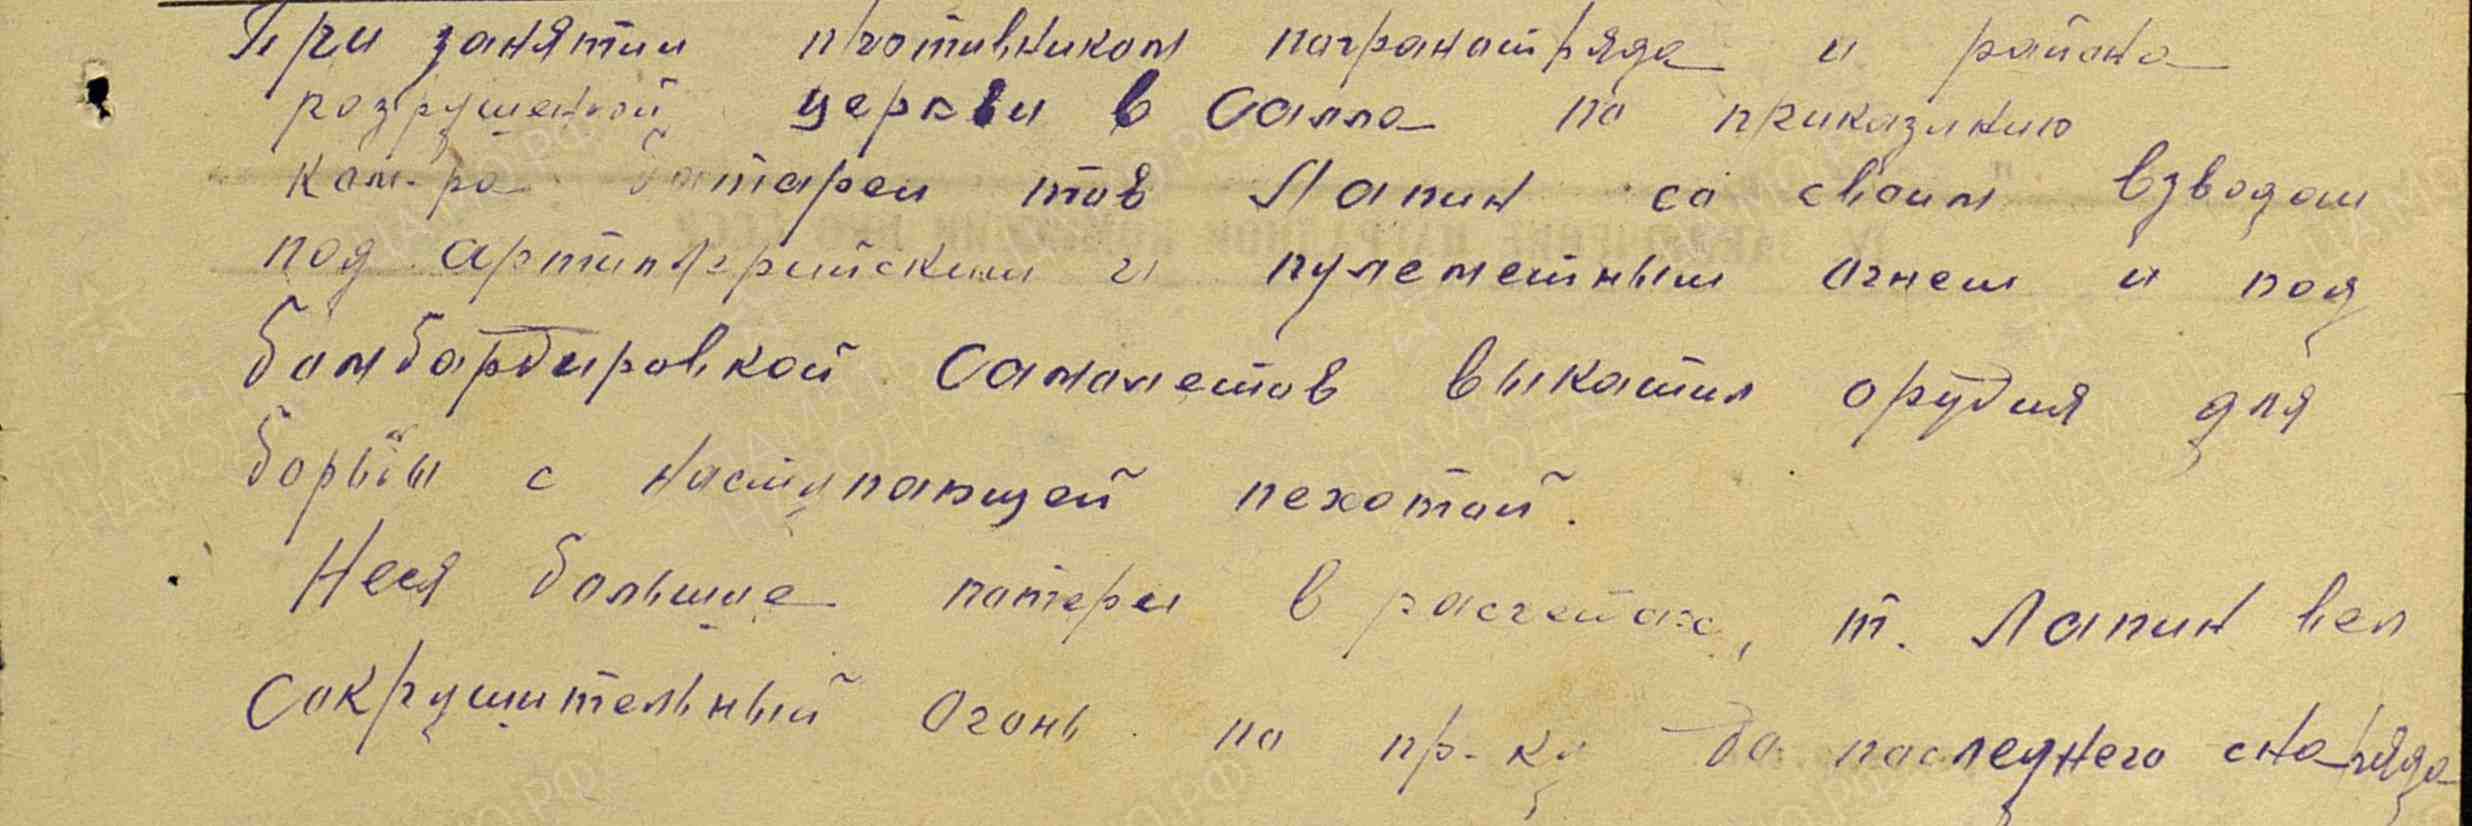 При занятии противником погранотряда и района
разрушенной церкви в Салла по приказанию
ком-ра батареи тов Лапин со своим взводом
под артиллерийским и пулеметным огнем и под
бомбардировкой самолетов выкатил орудия для
борьбы с наступающей пехотой.
Неся большие потери в расчетах, т. Лапин вел
сокрушительный огонь по пр-ку до последнего снаряда